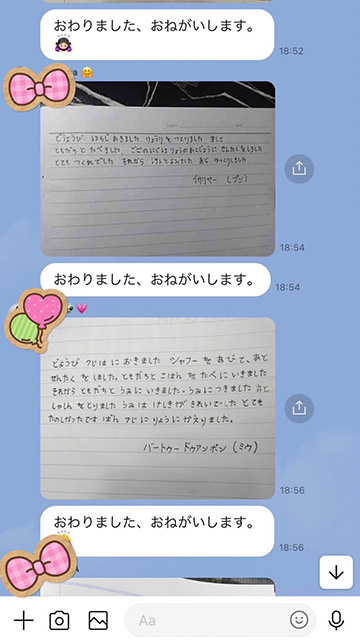 おわりました、おねがいします。
18:52
どようび はちじ おきました りょうり を つくりました そして
ともだち と たべました ごごのにじ にりょうのおくじょうに せんたくをしました
とても つくれでした それから ほんをよみました あと ゆっくりしました
(ブン)
18:54
おわりました、おねがいします。
18:54
どようび 7じはに おきました シャワー を あびて、あと
せんたく を しました。ともだちと ごはん を たべ にいきました
それから ともだちと うみ に いきました。うみに つきました あと
しゃしん をとりました うみは けしきが きれいでっした とても
たのしかったです ばん 7じに りょうに かえりました。
パートゥー ドゥアンポン (ミウ)
18:56
おわりました、おねがいします。
18:56
Aa